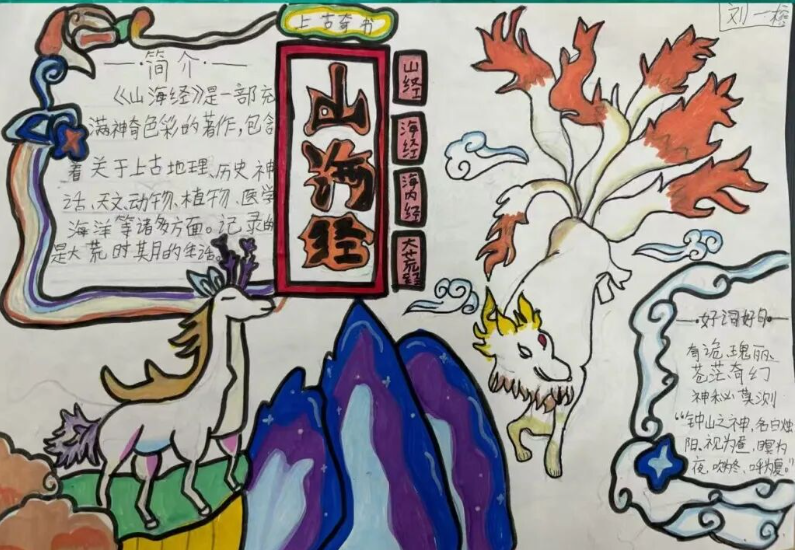 上古奇书
刘一
简介
《山海经》是一部充
满神奇色彩的著作,包含
着关于上古地理、历史、神
话、天文、动物、植物、医学
海洋等诸多方面。记录的
是大荒时期的生活。
山海经
山经
海经
海内经
大荒经
好词好句
奇诡瑰丽、
苍茫奇幻
神秘莫测
“钟山之神,名曰烛
阴,视为昼,瞑为
夜,吹为冬,呼为夏。”